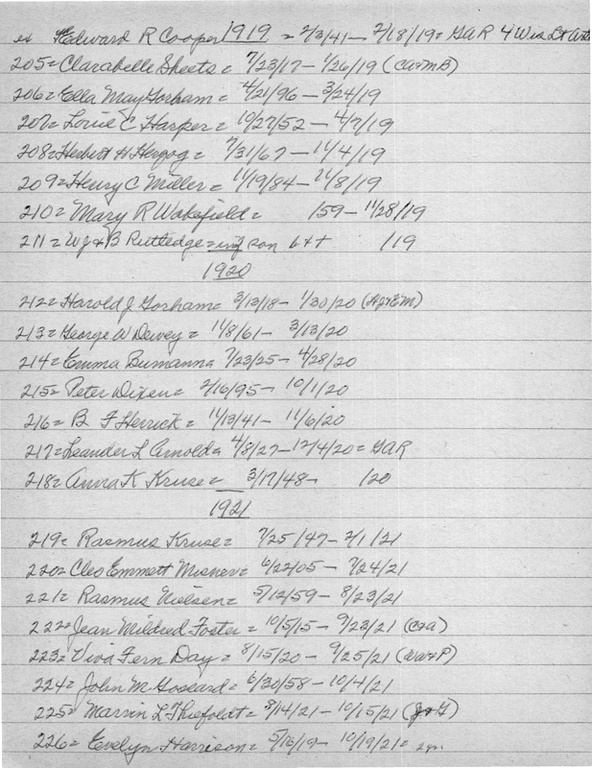 Edward R Cooper 1919 = 2/3/41 - 2/18/19 = GAR 4 Wis Lt
205 = Clarabelle Sheets = 7/23/17 - 1/26/19 (CA+MB)
206 = Ella May Gorham = 4/21/96 - 3/24/19
207 = Louie C Harper = 10/27/52 - 4/7/19
208 = Herbert H Herzog = 7/31/67 - 11/4/19
209 = Henry C Miller = 11/19/84 - 11/8/19
210 = Mary R Wakefield = 159 - 11/28/19
211 = WJ & B Rutledge = inf son b++ /19
1920
212 = Harold J Gorham = 3/13/18 - 1/30/20
213 = George W Dewey = 11/8/61 - 3/13/20
214 = Emma Bumanna 7/23/25 - 4/28/20
215 = Peter Dixen = 2/16/95 - 10/1/20
216 = B F Herrick = 11/13/41 - 11/6/20
217 = Leander L Arnold = 4/8/27 - 12/4/20 = GAR
218 = Anna K Kruse = 3/17/48 - /20
1921
219 = Rasmus Kruse = 7/25/47 - 2/1/21
220 = Cleo Emmett Misner = 6/22/05 - 7/24/21
221 = Rasmus Nielsen = 5/12/59 - 8/23/21
222 = Jean Mildred Foster = 10/5/15 - 9/23/21 (C+A)
223 = Viva Fern Day = 8/15/20 - 9/25/21 (W+P)
224 = John M Gossard = 6/30/58 - 10/4/21
225 = Marvin L Thiefoldt = 8/14/21 - 10/15/21 (J+G)
226 = Evelyn Harrison = 5/16/19 - 10/19/21 = 2yr.